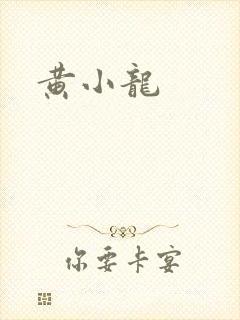 黄小龍
你要卡宴